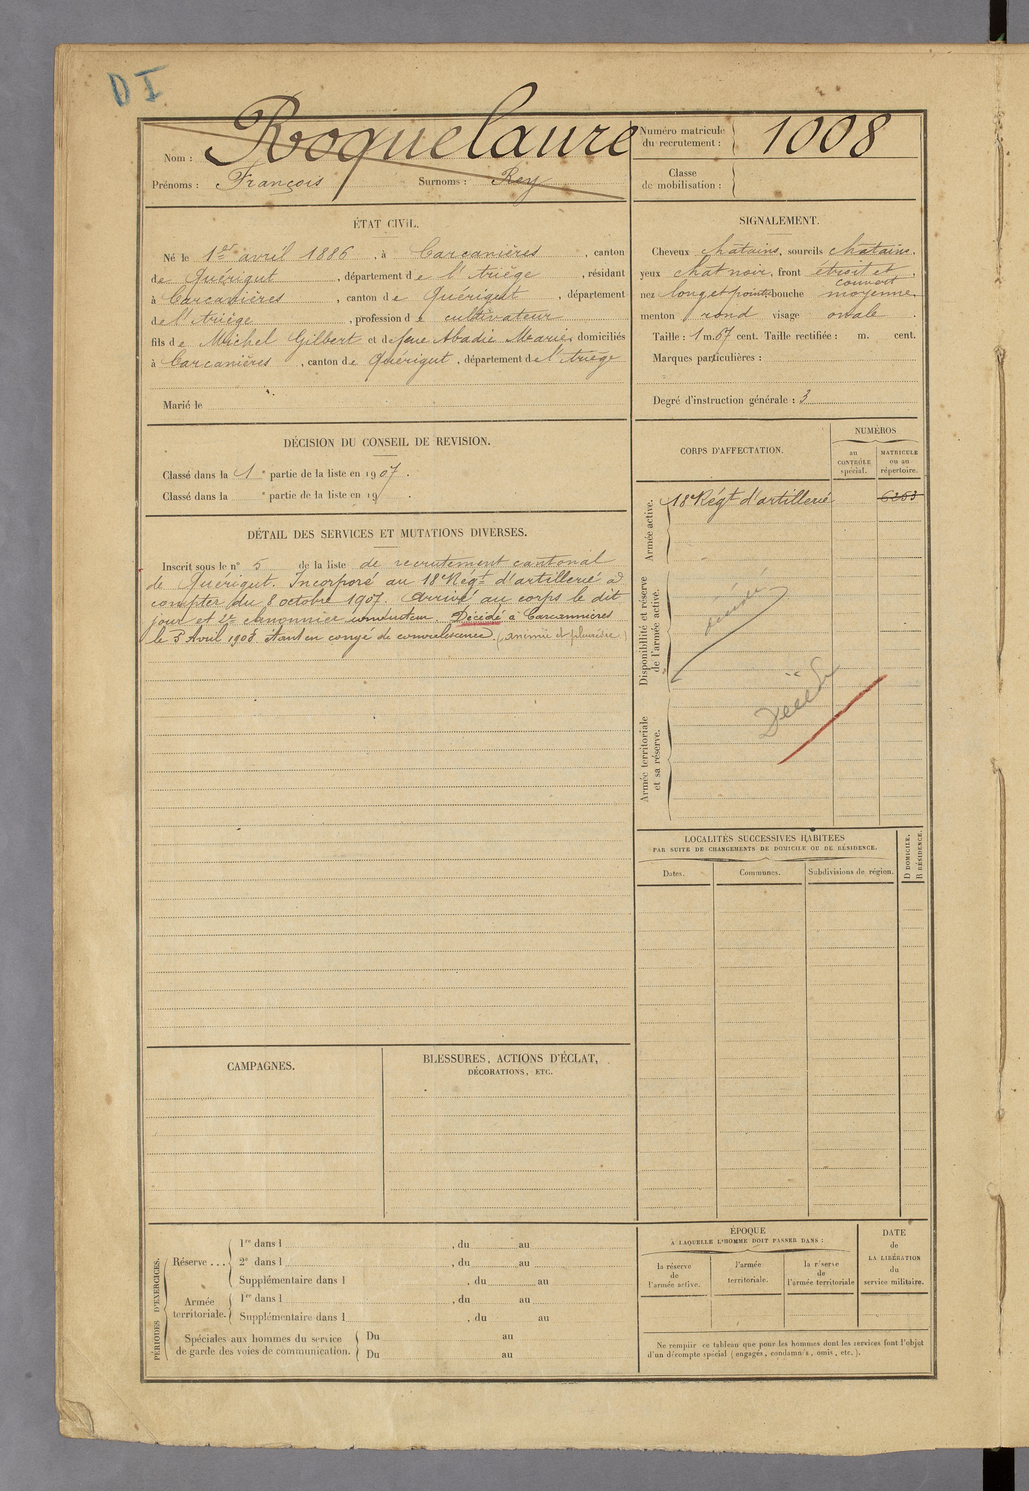 DI
Nom : Roquelaure
Prénoms : François Surnoms : Rey
Numéro matricule du recrutement : 1008
Classe de mobilisation :
ÉTAT CIVIL.
Né le 1er avril 1886, à Carcanières, canton
de Quérigut, département de l'Ariège, résidant
à Carcanières, canton de Quérigut, département
de l'Ariège, profession de cultivateur
fils de Michel Gilbert et de feue Abadie Marie, domiciliés
à Carcanières, canton de Quérigut, département de l'Ariège
Marié le
SIGNALEMENT.
Cheveux chatains, sourcils chatains,
yeux chat noir, front étroit et couvert,
nez long et point. bouche moyenne,
menton rond visage ovale.
Taille : 1 m. 67 cent. Taille rectifiée : m. cent.
Marques particulières :
Degré d'instruction générale : 3
DÉCISION DU CONSEIL DE REVISION.
Classé dans la 1e partie de la liste en 1907.
Classé dans la e partie de la liste en 19 .
DÉTAIL DES SERVICES ET MUTATIONS DIVERSES.
Inscrit sous le n° 5 de la liste de recrutement cantonal
de Quérigut. Incorporé au 18e Régt d'artillerie à
compter du 8 octobre 1907. Arrivé au corps le dit
jour et 2e canonnier conducteur. Décédé à Carcannières
le 3 Avril 1908 étant en congé de convalescence. (anémie et pleurésie)
CORPS D'AFFECTATION.
NUMÉROS
au CONTRÔLE spécial.
MATRICULE ou au répertoire.
Armée active.
18e Régt d'artillerie 6263
Disponibilité et réserve de l'armée active.
décédé
Armée territoriale et sa réserve.
Décédé
LOCALITÉS SUCCESSIVES HABITÉES
PAR SUITE DE CHANGEMENTS DE DOMICILE OU DE RÉSIDENCE.
Dates. Communes. Subdivisions de région.
D DOMICILE.
R RÉSIDENCE.
CAMPAGNES.
BLESSURES, ACTIONS D'ÉCLAT,
DÉCORATIONS, ETC.
PÉRIODES D'EXERCICES.
Réserve ...
1re dans l , du au
2e dans l , du au
Supplémentaire dans l , du au
Armée territoriale.
1re dans l , du au
Supplémentaire dans l , du au
Spéciales aux hommes du service de garde des voies de communication.
Du au
Du au
ÉPOQUE
À LAQUELLE L'HOMME DOIT PASSER DANS :
la réserve de l'armée active.
l'armée territoriale.
la réserve de l'armée territoriale
DATE
de
LA LIBÉRATION
du
service militaire.
Ne remplir ce tableau que pour les hommes dont les services font l'objet
d'un décompte spécial (engagés, condamnés, omis, etc.).